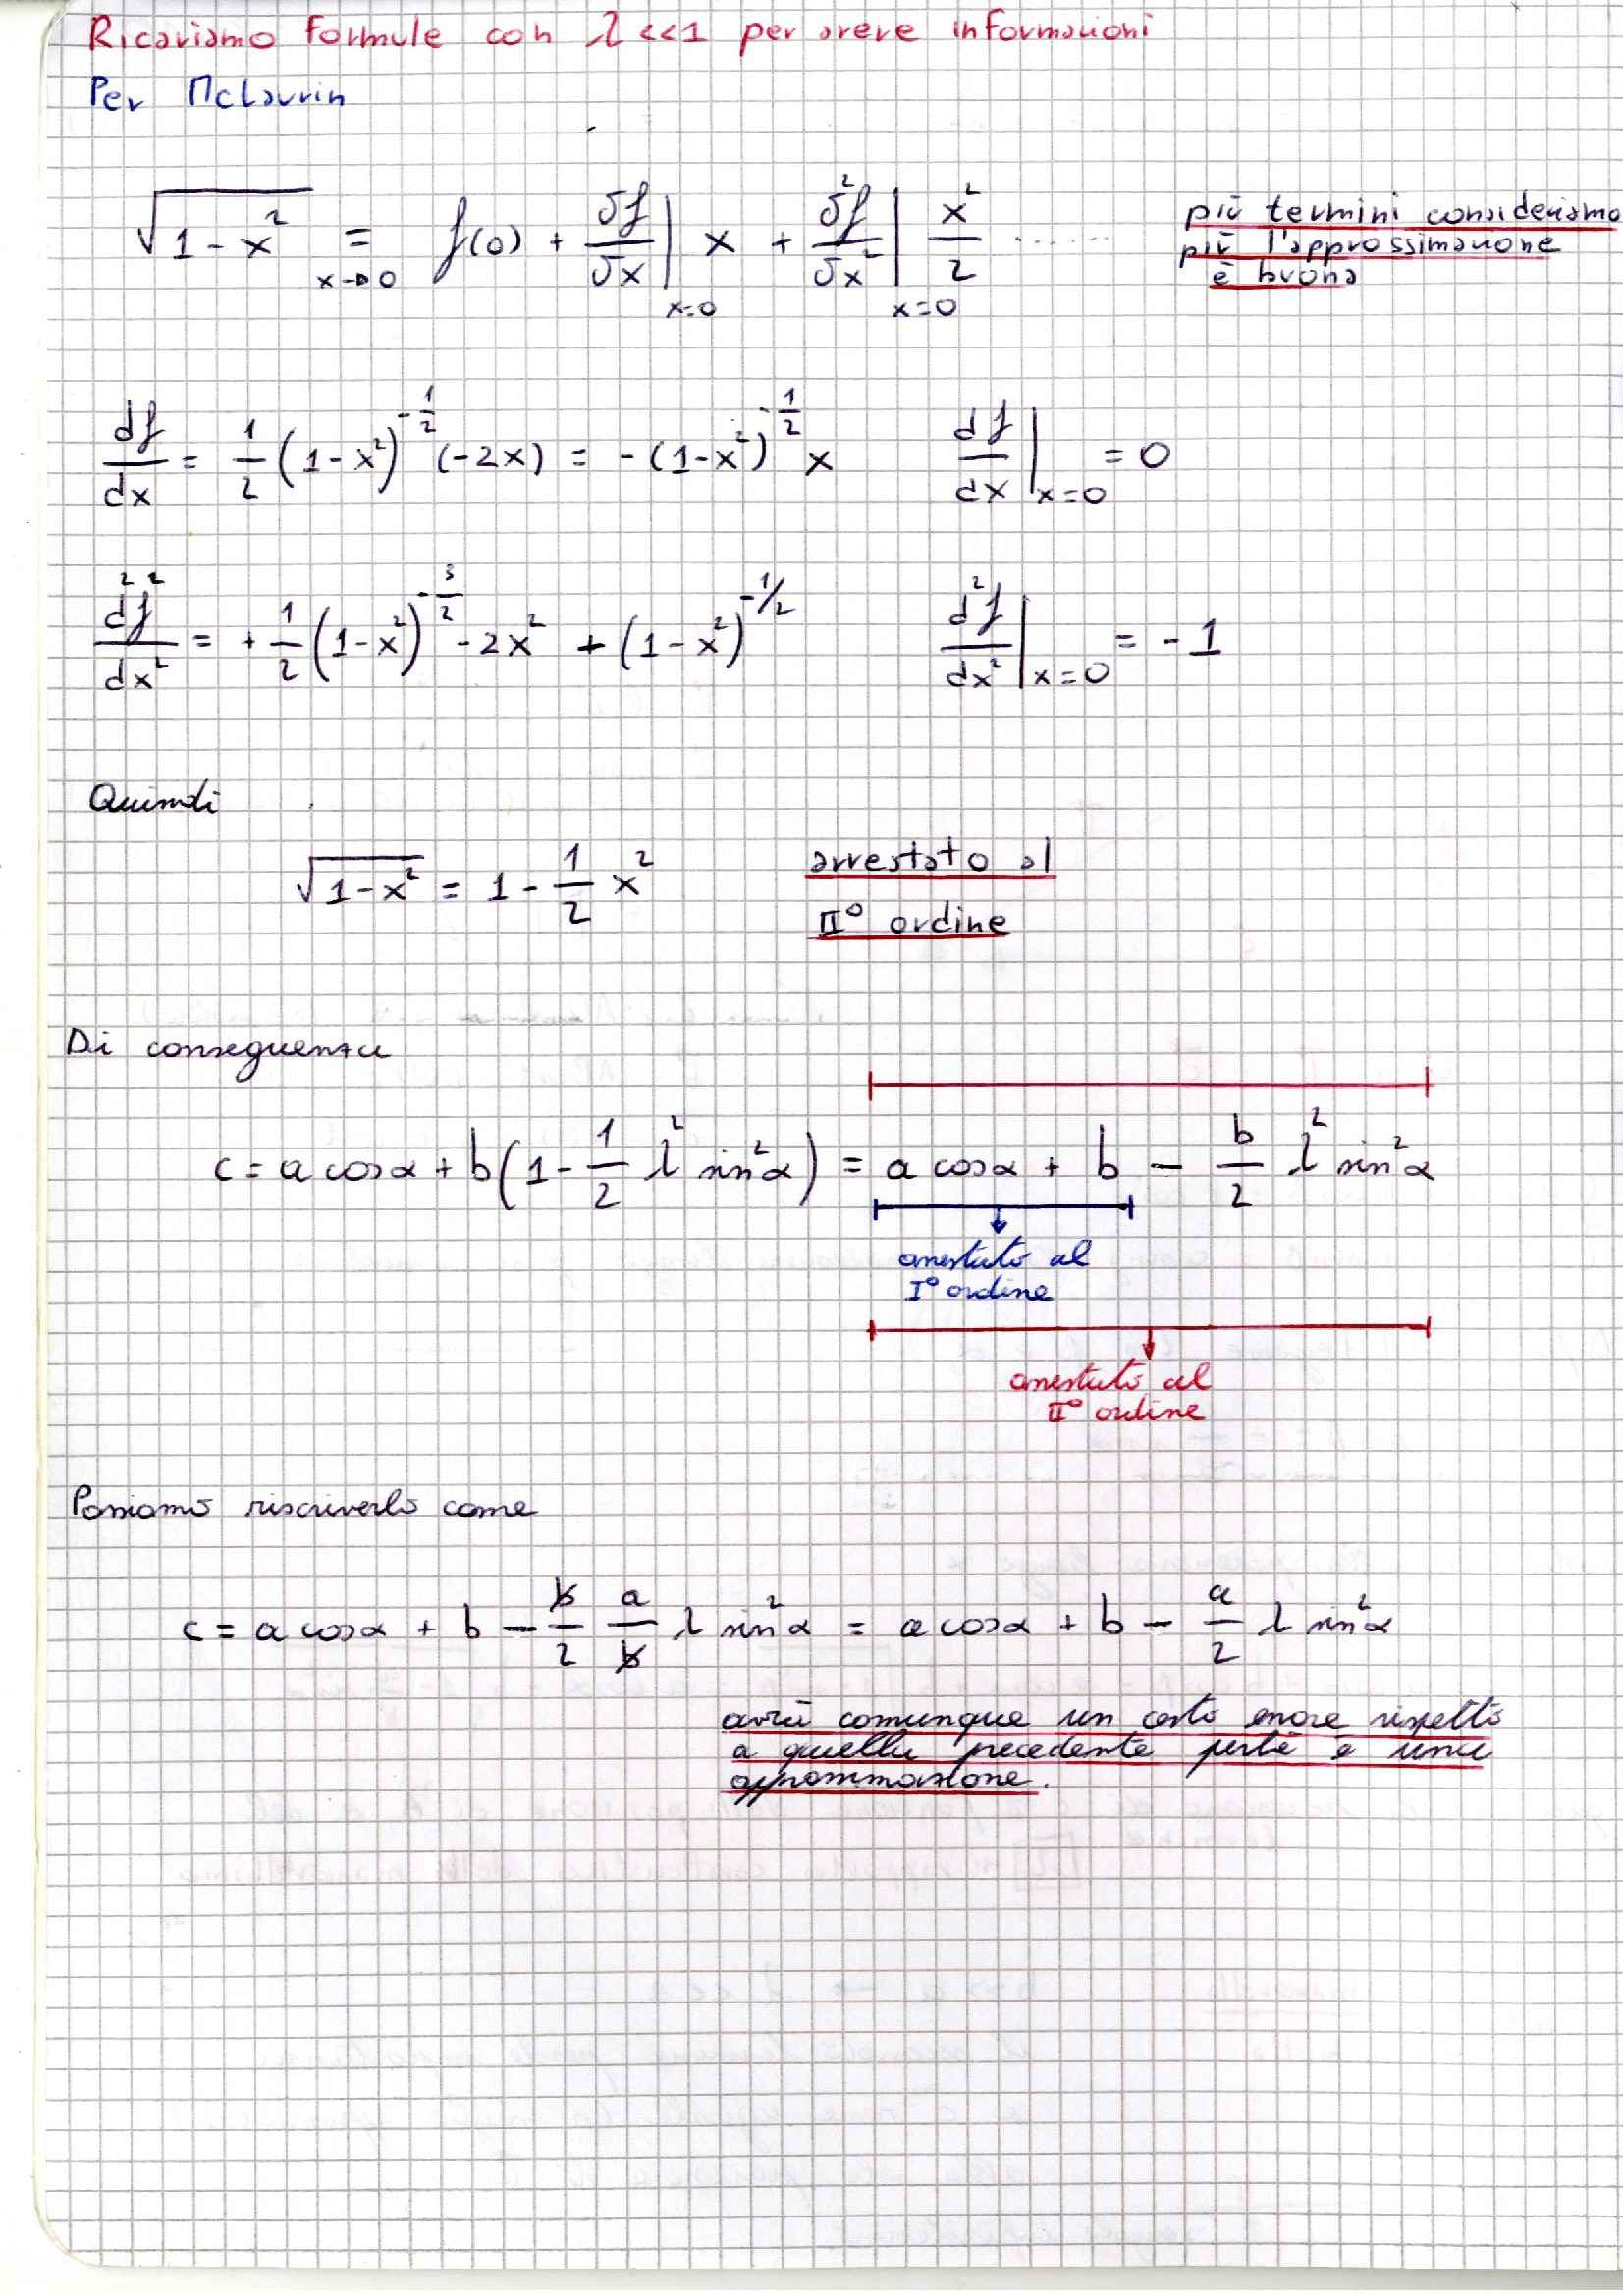 Ricaviamo formule con λ<<1 per avere informazioni
Per McLaurin
√(1-x²) =_{x→0} f(0) + δf/δx|_{x=0} x + δ²f/δx²|_{x=0} x²/2 ...... più termini consideriamo
più l'approssimazione
è buona
df/dx = 1/2 (1-x²)^{-1/2} (-2x) = -(1-x²)^{-1/2} x df/dx|_{x=0} = 0
d²f²/dx² = +1/2 (1-x²)^{-3/2} -2x² + (1-x²)^{-1/2} d²f/dx²|_{x=0} = -1
Quindi
√(1-x²) = 1 - 1/2 x² arrestato al
II° ordine
Di conseguenza
c = a cosα + b(1 - 1/2 λ² sin²α) = a cosα + b - b/2 λ² sin²α
arrestato al
I° ordine
arrestato al
II° ordine
Possiamo riscriverlo come
c = a cosα + b - b/2 a/b λ sin²α = a cosα + b - a/2 λ sin²α
avrà comunque un certo errore rispetto
a quella precedente perché è una
approssimazione.